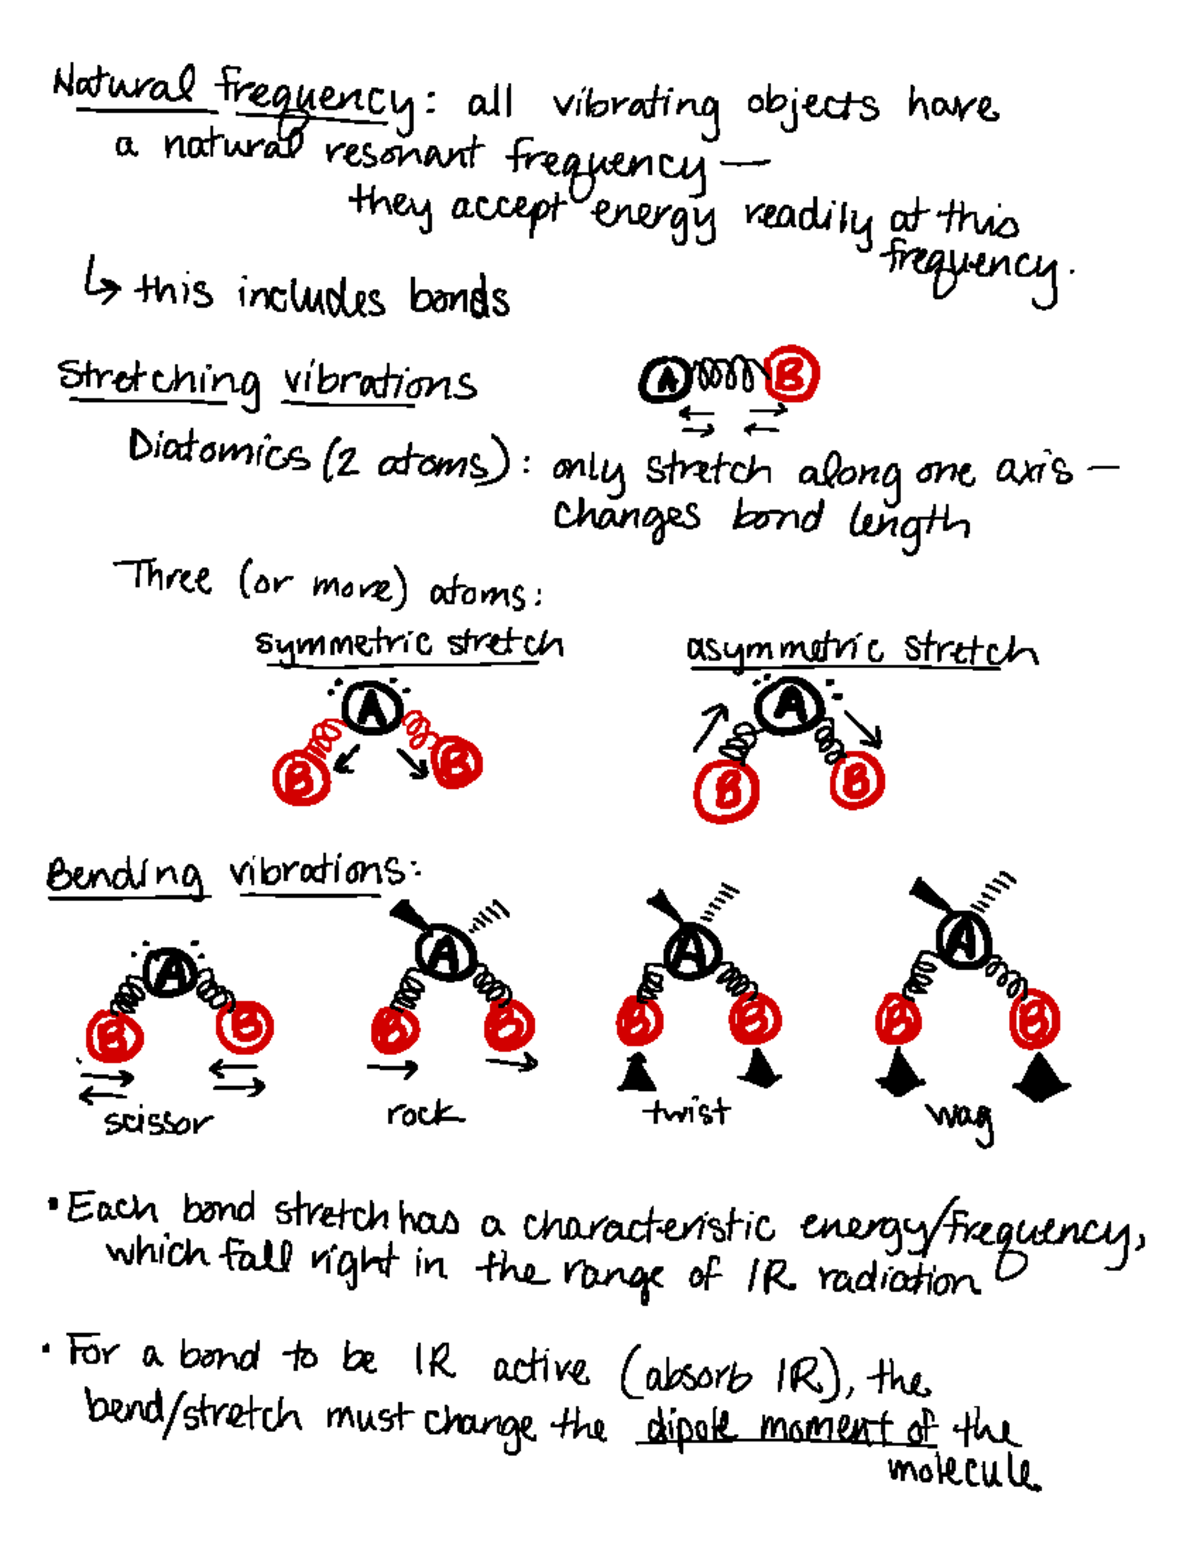 Natural frequency: all vibrating objects have
a natural resonant frequency —
they accept energy readily at this
frequency.
↳ this includes bonds
Stretching vibrations
A B
Diatomics (2 atoms): only stretch along one axis —
changes bond length
Three (or more) atoms:
symmetric stretch asymmetric stretch
A A
B B B B
Bending vibrations:
A A A A
B B B B B B B B
scissor rock twist wag
• Each bond stretch has a characteristic energy/frequency,
which fall right in the range of IR radiation
• For a bond to be IR active (absorb IR), the
bend/stretch must change the dipole moment of the
molecule